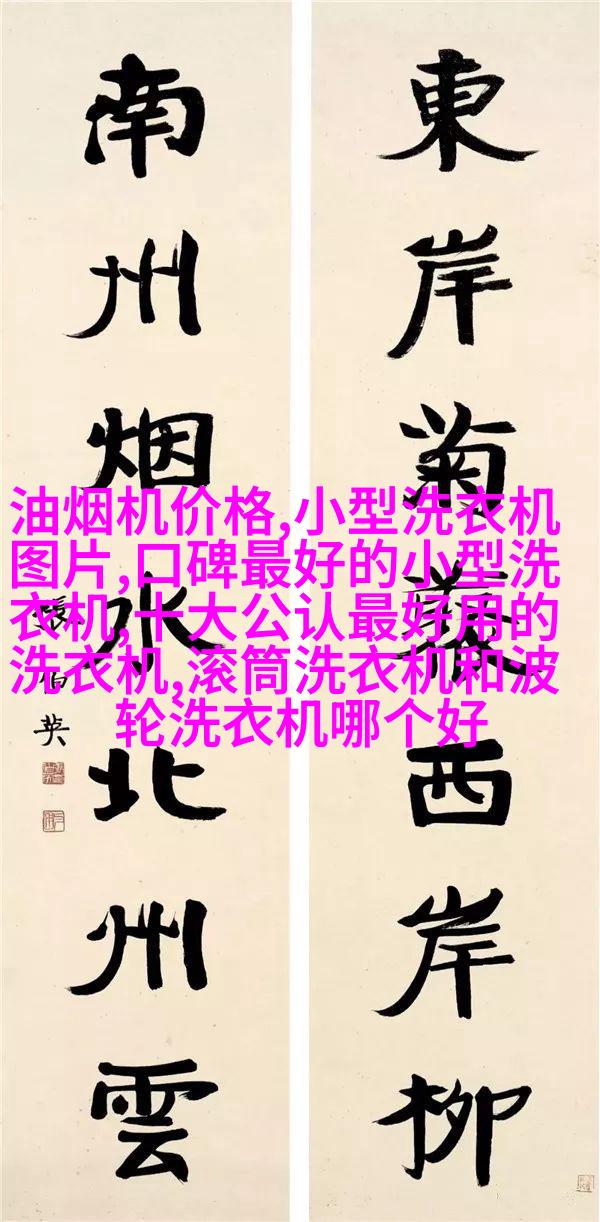 東岸菊西岸柳
南州烟水北州雲
張伯英
油烟机价格,小型洗衣机
图片,口碑最好的小型洗
衣机,十大公认最好用的
洗衣机,滚筒洗衣机和波
轮洗衣机哪个好